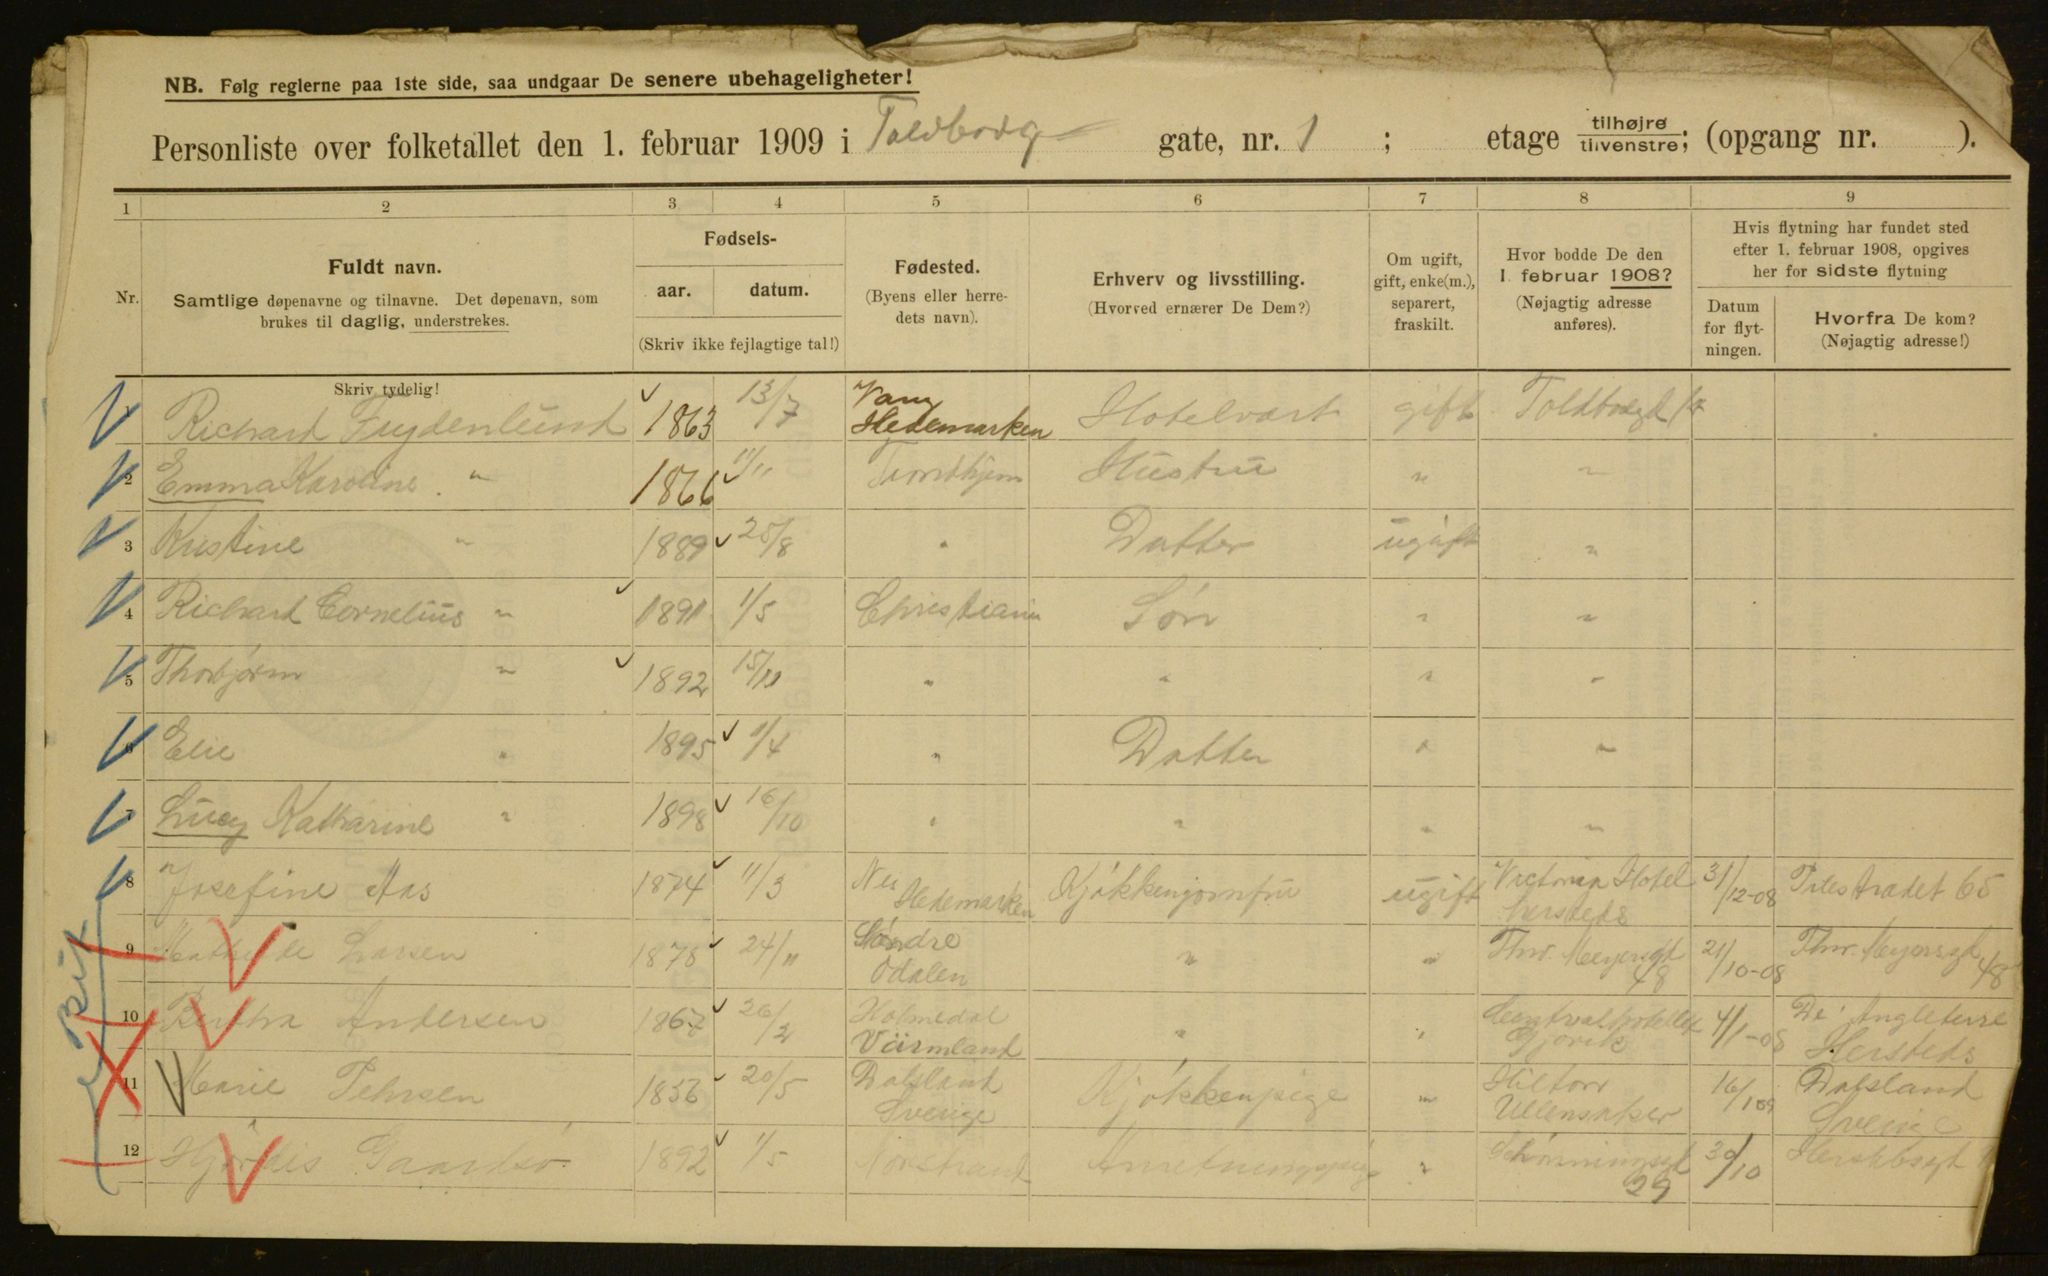 NB. Følg reglerne paa 1ste side, saa undgaar De senere ubehageligheter!
Personliste over folketallet den 1. februar 1909 i Toldbodg gate, nr. 1 ; etage tilhøjre tilvenstre; (opgang nr. ).
1 2 3 4 5 6 7 8 9
Nr.
Fuldt navn.
Samtlige døpenavne og tilnavne. Det døpenavn, som
brukes til daglig, understrekes.
Fødsels-
aar. datum.
(Skriv ikke fejlagtige tal!)
Fødested.
(Byens eller herre-
dets navn).
Erhverv og livsstilling.
(Hvorved ernærer De Dem?)
Om ugift,
gift, enke(m.),
separert,
fraskilt.
Hvor bodde De den
1. februar 1908?
(Nøjagtig adresse
anføres).
Hvis flytning har fundet sted
efter 1. februar 1908, opgives
her for sidste flytning
Datum
for flyt-
ningen.
Hvorfra De kom?
(Nøjagtig adresse!)
Skriv tydelig!
1 Richard Frydenlund 1863 13/7 Vang Hedemarken Hotelvært gift Toldbodgt
2 Emma Karoline " 1866 11/11 Trondhjem Hustru " "
3 Kristine " 1889 25/8 " Datter ugift "
4 Richard Cornelius " 1891 1/5 Christiania Søn " "
5 Thorbjørn " 1892 15/11 " " " "
6 Elie " 1895 1/4 " Datter " "
7 Lucy Katharine " 1898 16/10 " " " "
8 Josefine Aas 1874 11/3 Nes Hedemarken Kjøkkenjomfru ugift Victoria Hotel 31/12-08 Pilestrædet 65
9 Mathilde Larsen 1878 24/11 Søndre Odalen " " Thv. Meyersgt 48 21/10-08 Thv. Meyersgt 48
10 Bertha Andersen 1867 26/2 Holmedal Värmland " " Centralhotellet Gjøvik 4/1-08 De' Angleterre
11 Marie Pehrsen 1856 20/5 Dalsland Sverige Kjøkkenpige " Ullensaker 16/1 09 Dalsland Sverige
12 Hjørdis Gaarbo 1892 1/5 Norstrand Anretningspige " Schønningsgt 29 30/10